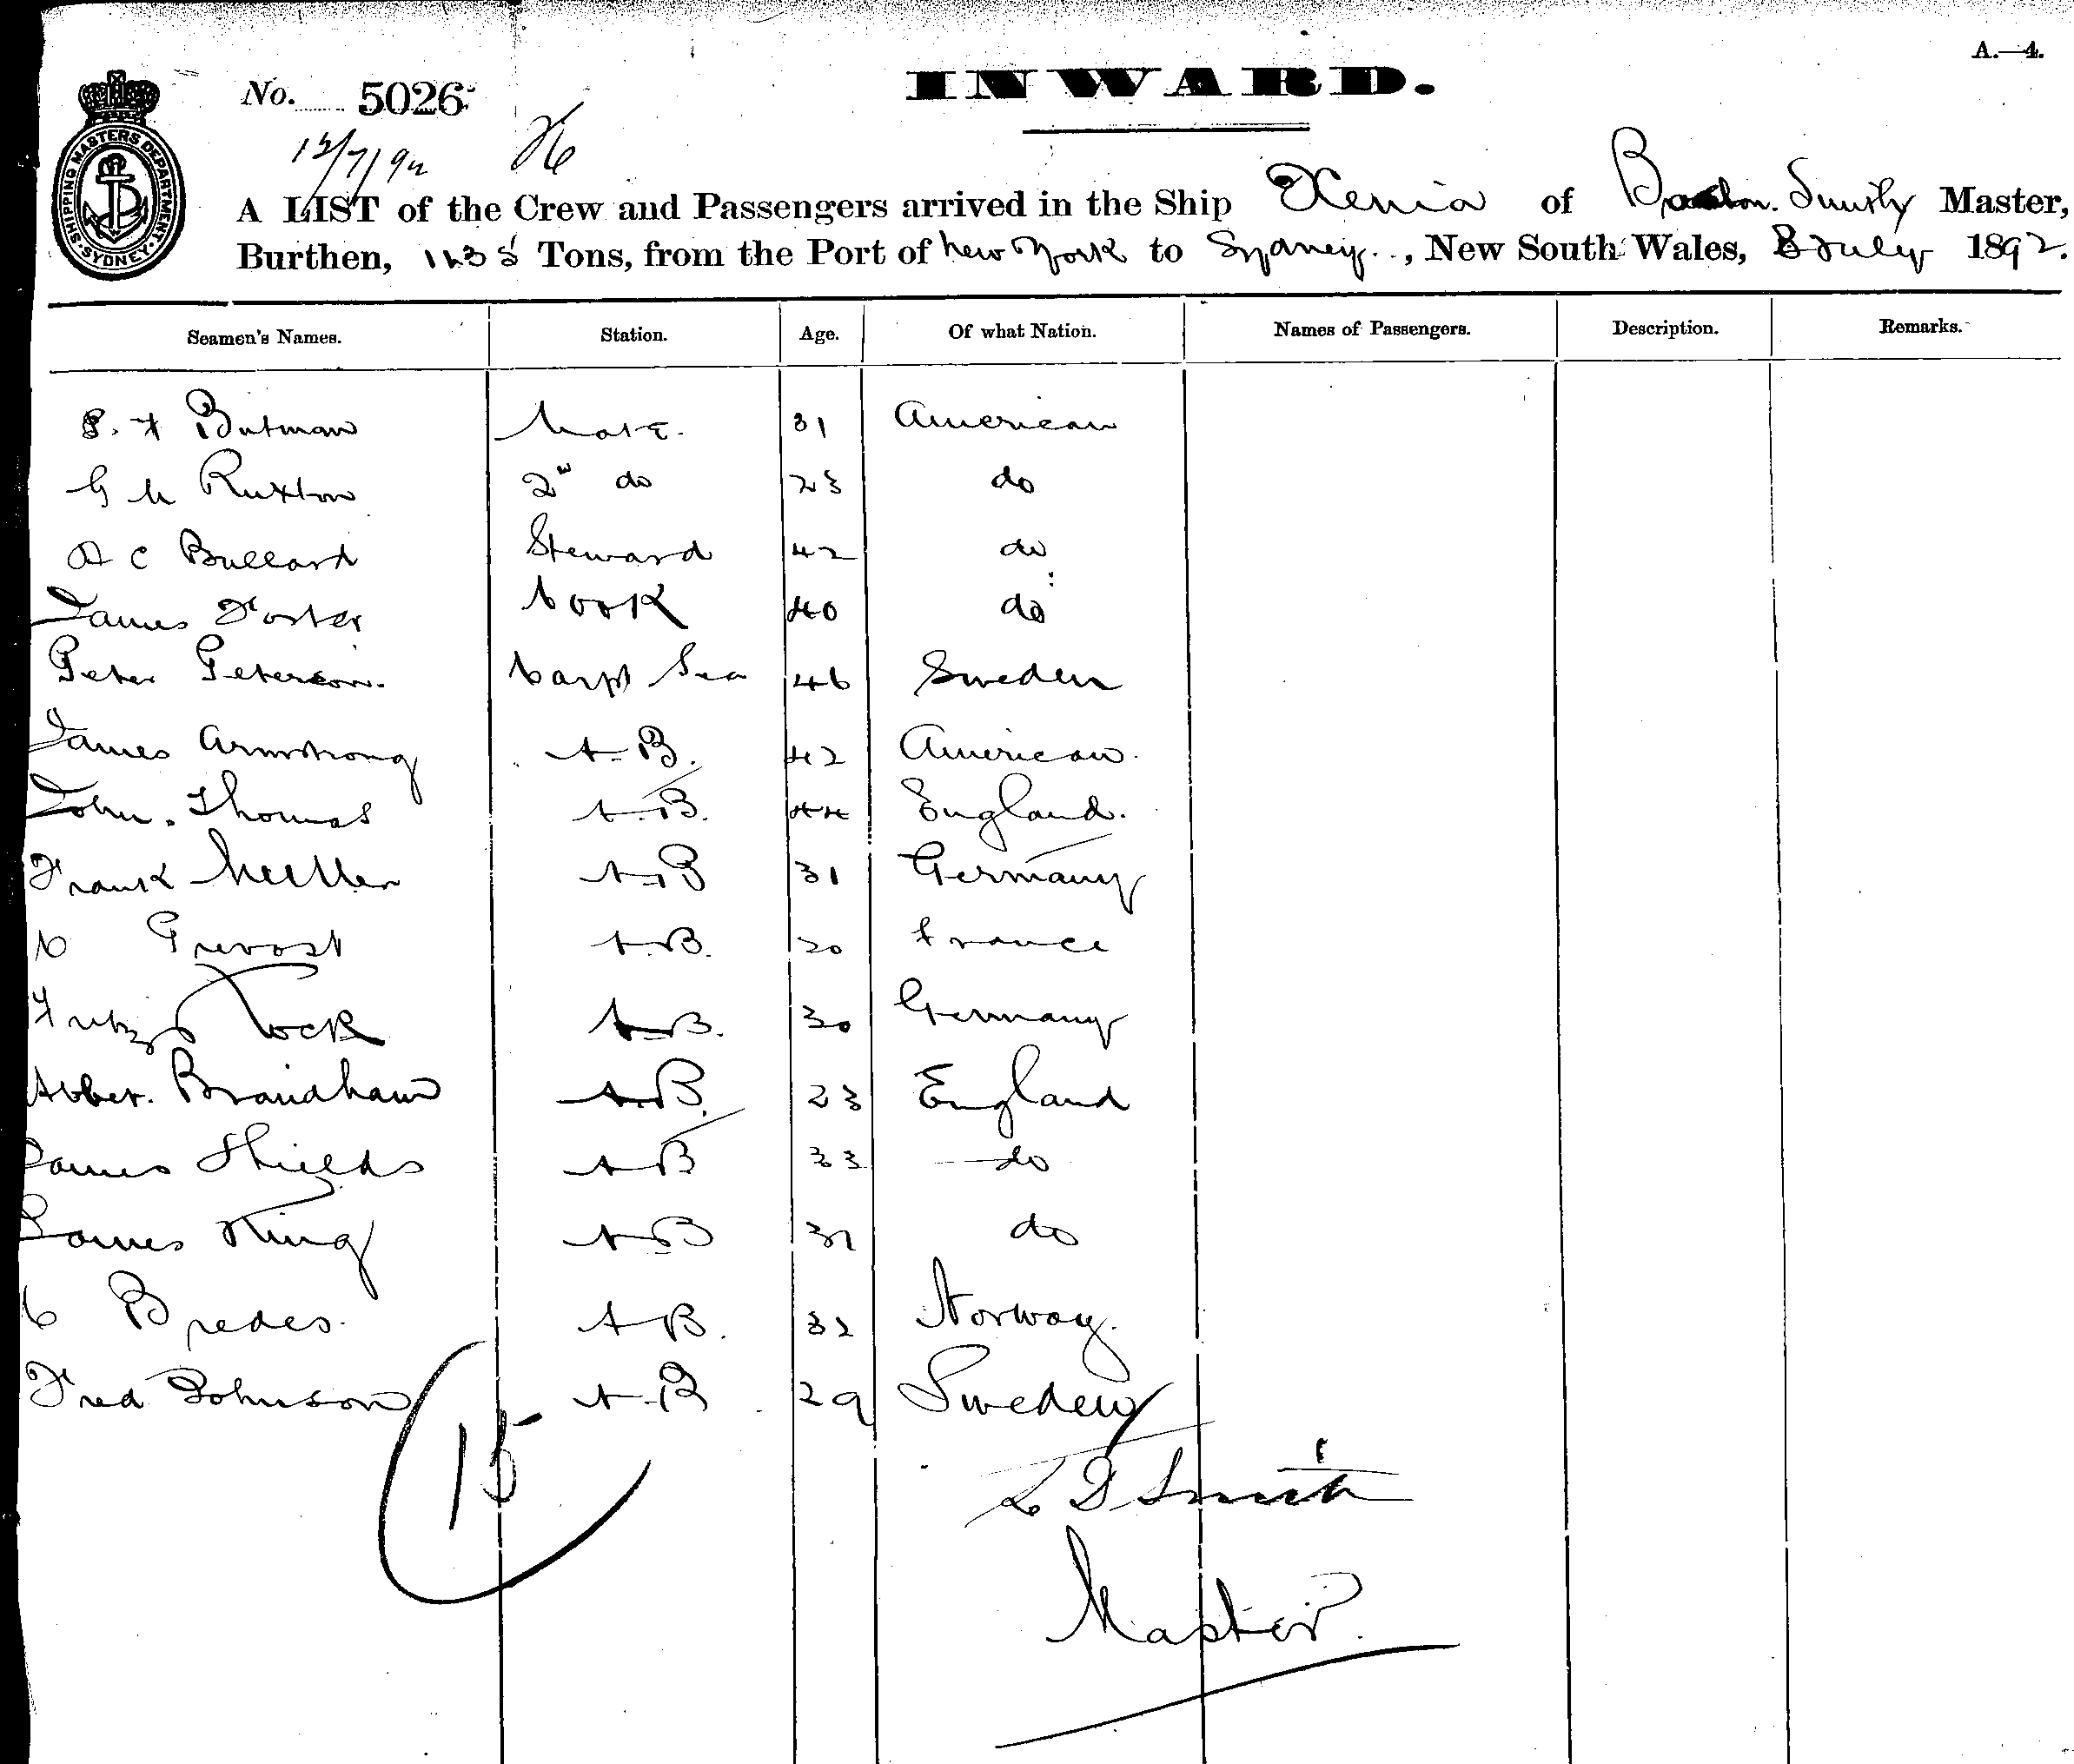 A.—4.
INWARD.
No. 5026
12/7/92
SHIPPING MASTERS DEPARTMENT SYDNEY
A LIST of the Crew and Passengers arrived in the Ship Xenia of Boston. Master,
Burthen, Tons, from the Port of New York to Sydney, New South Wales, 8 July 1892.
Seamen's Names. Station. Age. Of what Nation. Names of Passengers. Description. Remarks.
Butman Mate. 31 American
Ruxton 2nd do 23 do
A C Bullard Steward 42 do
James Foster Cook 40 do
Peter Peterson. Carp Sea 46 Sweden
James Armstrong A-B. 42 American.
John. Thomas A.B. 44 England.
Frank Muller A-B 31 Germany
Prevost A.B. 20 France
Fritz Tock A-B. 30 Germany
Brandham A.B. 23 England
James Shields A-B 33 do
James King A-B 31 do
C Bredes. A B. 32 Norway.
Fred Johnson A-B 29 Sweden
15
Smith
Master.